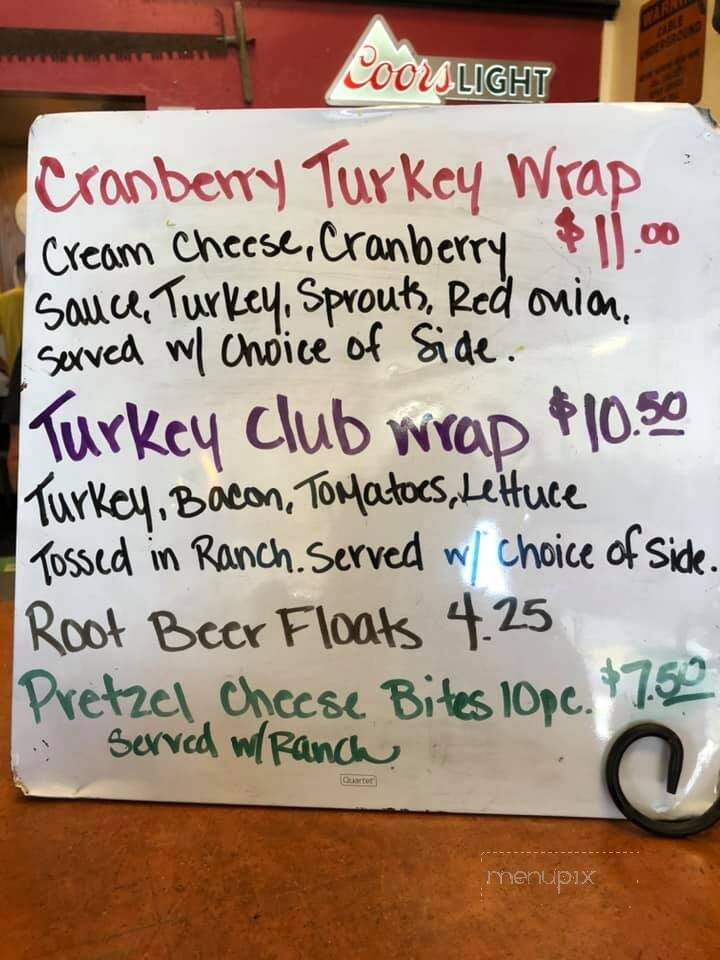 Coors LIGHT
WARNING
CABLE
UNDERGROUND
Cranberry Turkey Wrap
$11.00
Cream Cheese, Cranberry
Sauce, Turkey, Sprouts, Red onion,
Served w/ Choice of Side.
Turkey Club wrap $10.50
Turkey, Bacon, Tomatoes, Lettuce
Tossed in Ranch. Served w/ Choice of Side.
Root Beer Floats 4.25
Pretzel Cheese Bites 10pc. $7.50
Served w/ Ranch
Quartet
menupix